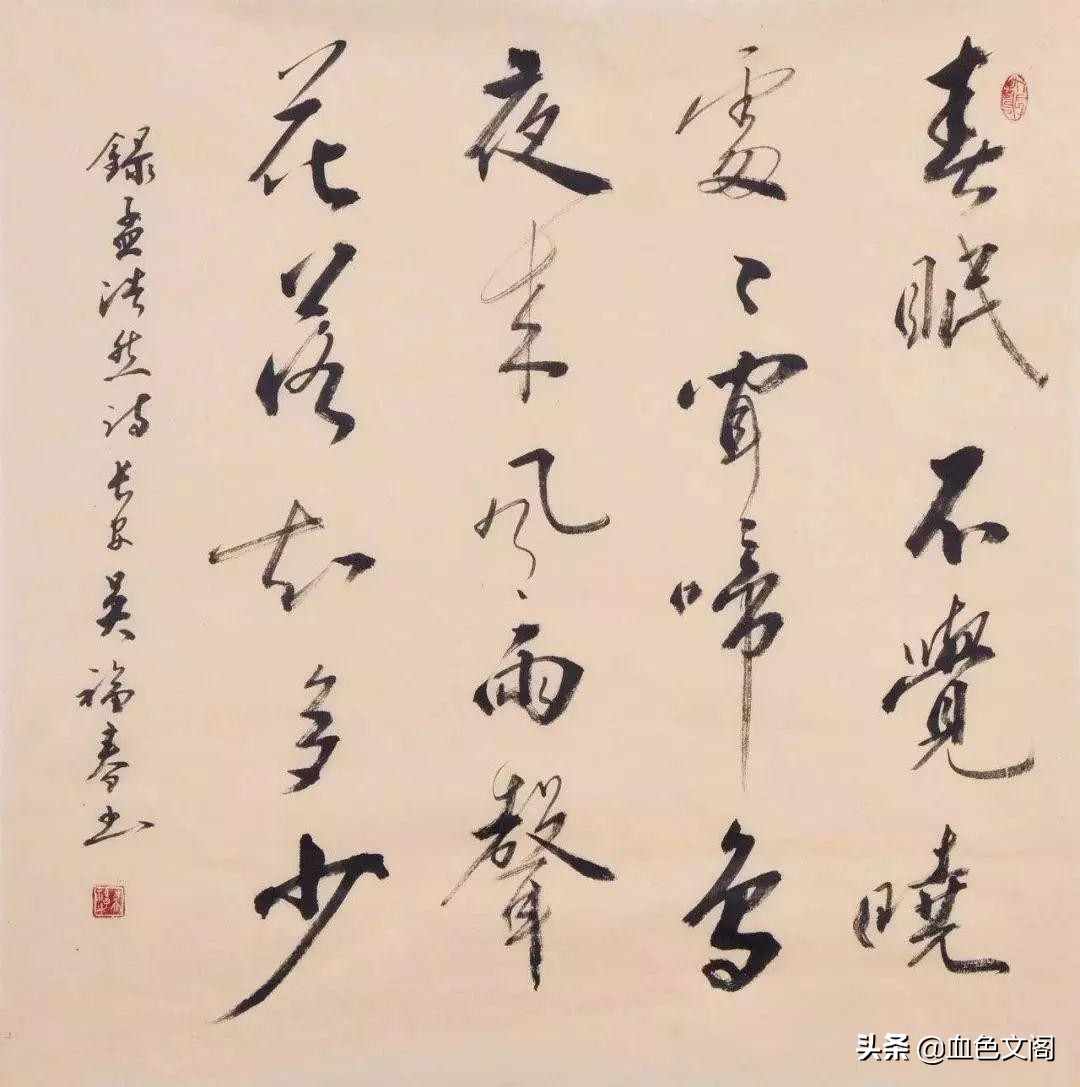 春眠不覺曉
處〻聞啼鳥
夜来風雨聲
花落知多少
録孟浩然詩長安吳福春書
头条 @血色文阁